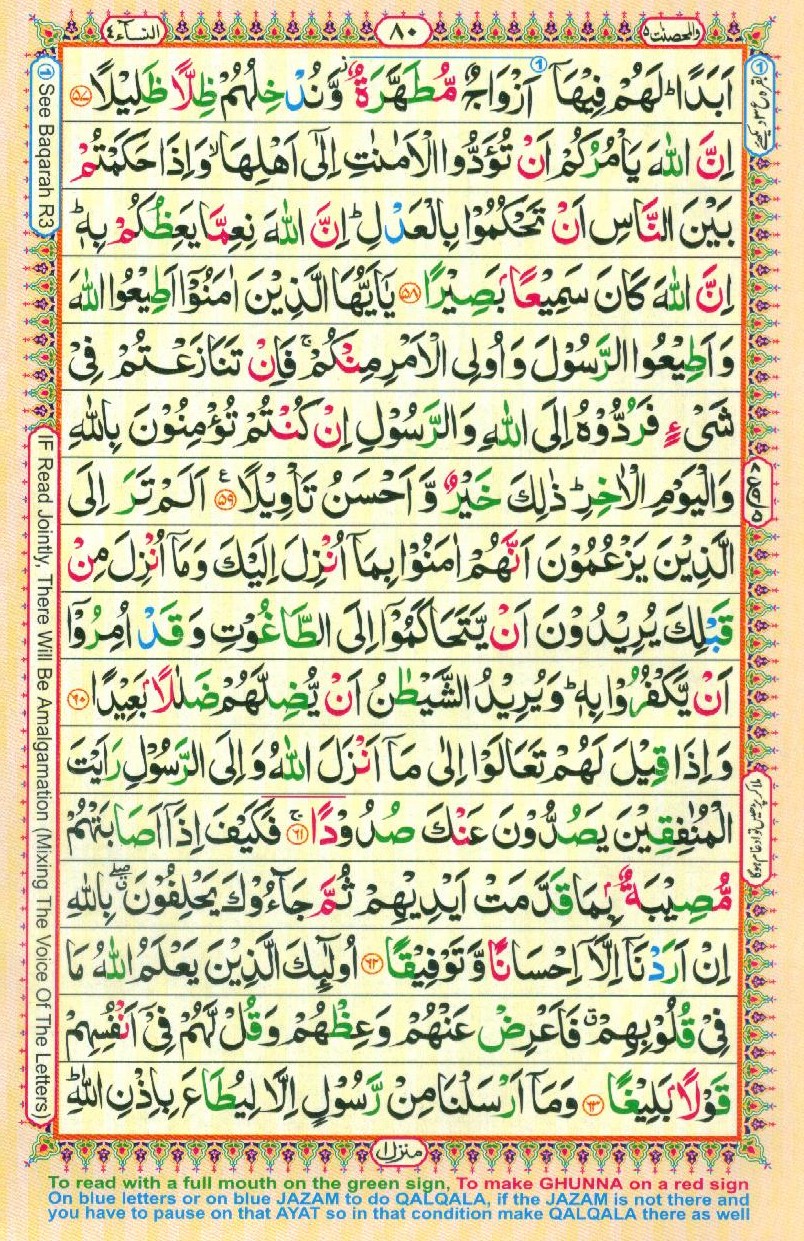 النسآء ٤
٨٠
والمحصنت ٥
اَبَدًا ؕ لَهُمْ فِيْهَاۤ اَزْوَاجٌ مُّطَهَّرَةٌ ۫ وَّنُدْخِلُهُمْ ظِلًّا ظَلِيْلًا ﴿۵۷﴾
اِنَّ اللّٰهَ يَاْمُرُكُمْ اَنْ تُؤَدُّوا الْاَمٰنٰتِ اِلٰۤى اَهْلِهَا ۙ وَاِذَا حَكَمْتُمْ
بَيْنَ النَّاسِ اَنْ تَحْكُمُوْا بِالْعَدْلِ ؕ اِنَّ اللّٰهَ نِعِمَّا يَعِظُكُمْ بِهٖ ؕ
اِنَّ اللّٰهَ كَانَ سَمِيْعًۢا بَصِيْرًا ﴿۵۸﴾ يٰۤاَيُّهَا الَّذِيْنَ اٰمَنُوْۤا اَطِيْعُوا اللّٰهَ
وَاَطِيْعُوا الرَّسُوْلَ وَاُولِى الْاَمْرِ مِنْكُمْ ۚ فَاِنْ تَنَازَعْتُمْ فِىْ
شَىْءٍ فَرُدُّوْهُ اِلَى اللّٰهِ وَالرَّسُوْلِ اِنْ كُنْتُمْ تُؤْمِنُوْنَ بِاللّٰهِ
وَالْيَوْمِ الْاٰخِرِ ؕ ذٰلِكَ خَيْرٌ وَّاَحْسَنُ تَاْوِيْلًا ﴿۵۹﴾ ع اَلَمْ تَرَ اِلَى
الَّذِيْنَ يَزْعُمُوْنَ اَنَّهُمْ اٰمَنُوْا بِمَاۤ اُنْزِلَ اِلَيْكَ وَمَاۤ اُنْزِلَ مِنْ
قَبْلِكَ يُرِيْدُوْنَ اَنْ يَّتَحَاكَمُوْۤا اِلَى الطَّاغُوْتِ وَقَدْ اُمِرُوْۤا
اَنْ يَّكْفُرُوْا بِهٖ ؕ وَيُرِيْدُ الشَّيْطٰنُ اَنْ يُّضِلَّهُمْ ضَلٰلًۢا بَعِيْدًا ﴿۶۰﴾
وَاِذَا قِيْلَ لَهُمْ تَعَالَوْا اِلٰى مَاۤ اَنْزَلَ اللّٰهُ وَاِلَى الرَّسُوْلِ رَاَيْتَ
الْمُنٰفِقِيْنَ يَصُدُّوْنَ عَنْكَ صُدُوْدًا ﴿۶۱﴾ ۚ فَكَيْفَ اِذَاۤ اَصَابَتْهُمْ
مُّصِيْبَةٌۢ بِمَا قَدَّمَتْ اَيْدِيْهِمْ ثُمَّ جَآءُوْكَ يَحْلِفُوْنَ ۖ بِاللّٰهِ
اِنْ اَرَدْنَاۤ اِلَّاۤ اِحْسَانًا وَّتَوْفِيْقًا ﴿۶۲﴾ اُولٰٓئِكَ الَّذِيْنَ يَعْلَمُ اللّٰهُ مَا
فِىْ قُلُوْبِهِمْ ۗ فَاَعْرِضْ عَنْهُمْ وَعِظْهُمْ وَقُلْ لَّهُمْ فِىْۤ اَنْفُسِهِمْ
قَوْلًۢا بَلِيْغًا ﴿۶۳﴾ وَمَاۤ اَرْسَلْنَا مِنْ رَّسُوْلٍ اِلَّا لِيُطَاعَ بِاِذْنِ اللّٰهِ ؕ
منزل ١
① See Baqarah R3
IF Read Jointly, There Will Be Amalgamation (Mixing The Voice Of The Letters)
To read with a full mouth on the green sign, To make GHUNNA on a red sign
On blue letters or on blue JAZAM to do QALQALA, if the JAZAM is not there and
you have to pause on that AYAT so in that condition make QALQALA there as well